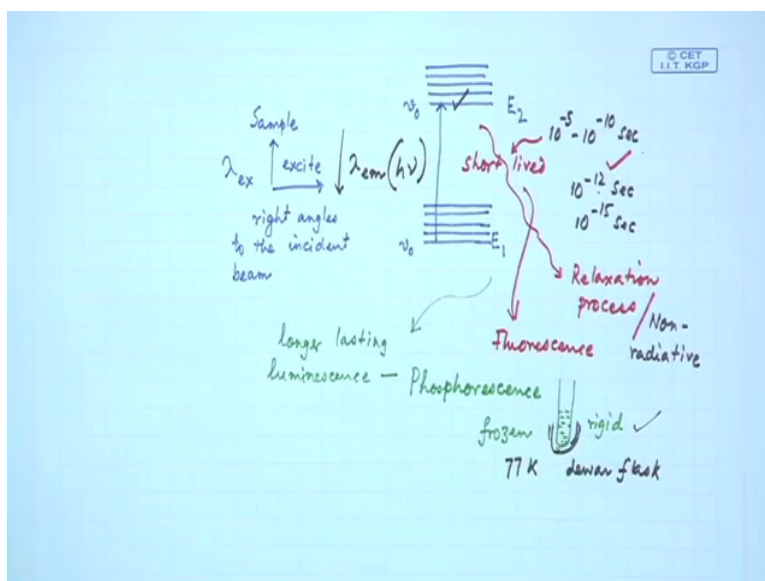 © CET
I.I.T. KGP
Sample
λex
excite
λem (hν)
right angles
to the incident
beam
v₀
E₂
v₀
E₁
short lived
10⁻⁵ - 10⁻¹⁰ sec
10⁻¹² sec
10⁻¹⁵ sec
Relaxation
process /
Non-
radiative
Fluorescence
longer lasting
luminescence — Phosphorescence
frozen
rigid
77 K dewar flask